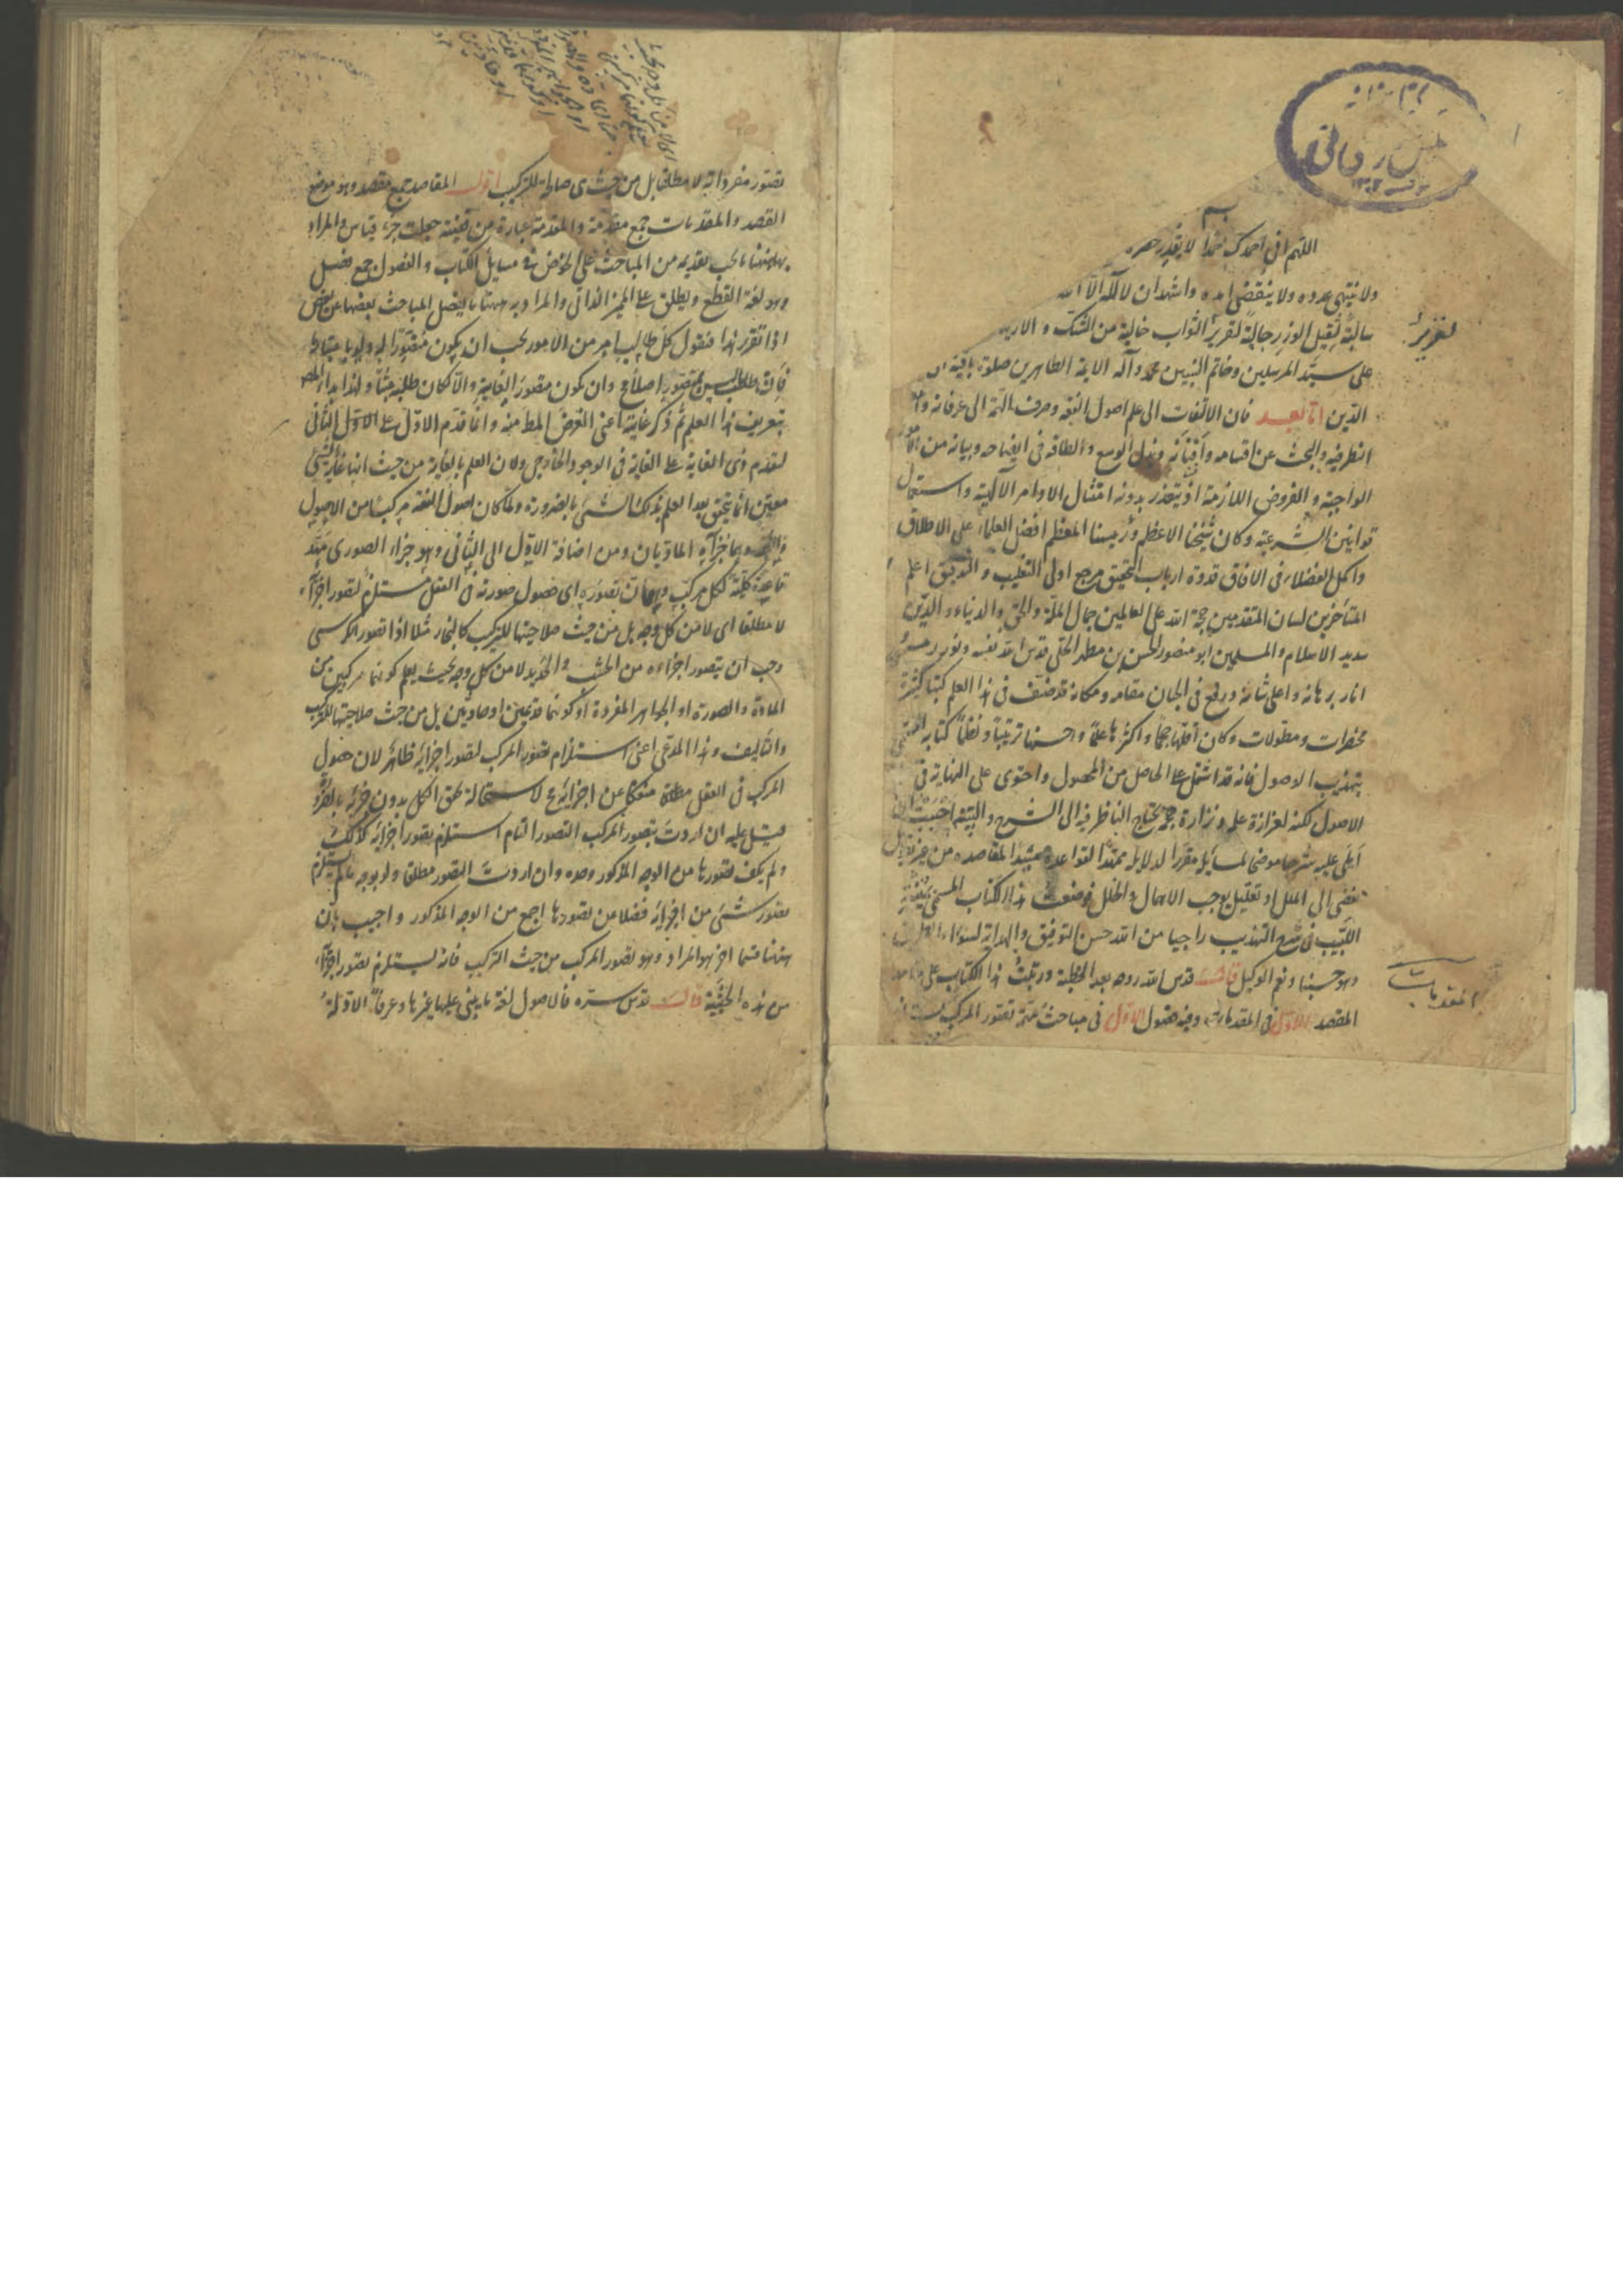 اللهم انی احمدک حمدا لا یقدر حصره
ولا ینتهی عدده ولا ینقضی امده واشهد ان لا اله الا الله
سالبة لثقیل الوزر جالبة لغزیر الثواب خالیة من الشک و الارتیاب
لغزیر
علی سید المرسلین وخاتم النبیین محمد وآله الایمة الطاهرین صلوة باقیة
الدین اما بعد فان الالتفات الی علم اصول الفقه وصرف الهمة الی عرفانه
النظر فیه والبحث عن اقسامه وافنانه وبذل الوسع والطاقة فی ایضاحه وبیانه من الامور
الواجبة والفروض اللازمة اذ یتعذر بدونه امتثال الاوامر الالهیة واستعمال
قوانین الشرعیة وکان شیخنا الاعظم ورئیسنا المعظم افضل العلماء علی الاطلاق
واکمل الفضلاء فی الافاق قدوة ارباب التحقیق مرجع اولی التنقیب و التدقیق اعلم
المتاخرین لسان المتقدمین حجة الله علی العالمین جمال الملة والحق والدنیا والدین
سدید الاسلام والمسلمین ابو منصور الحسن بن مطهر الحلی قدس الله نفسه ونور رمسه
انار برهانه واعلی شانه ورفع فی الجنان مقامه ومکانه قد صنف فی هذا العلم کتبا کثیرة
مختصرات ومطولات وکان اقلها حجما واکثرها علما واحسنها ترتیبا ونظما کتابه المسمی
بتهذیب الاصول فانه قد اشتمل علی الحاصل من المحصول واحتوی علی النهایة فی
الاصول لکنه لغزارة علمه ونزارة حجمه یحتاج الناظر فیه الی الشرح والتبیین احببت ان
املی علیه شرحا موضحا لمسایله مقررا لدلایله ممهدا لقواعده مشیدا لمقاصده من غیر تطویل
یفضی الی الملل او تقلیل یوجب الاهمال والخلل فوضعت هذا الکتاب المسمی بمنیة
اللبیب فی شرح التهذیب راجیا من الله حسن التوفیق والهدایة لسواء الطریق
وهو حسبنا ونعم الوکیل قال قدس الله روحه بعد الخطبة ورتبت هذا الکتاب علی مقاصد
المقصد الاول فی المقدمات وفیه فصول الاول فی مباحث مهمة تصور المرکب یستلزم
المقدمات
تصور مفرداته لا مطلقا بل من حیث هی صالحة للترکیب اقول المقاصد جمع مقصد وهو موضع
القصد والمقدمات جمع مقدمة والمقدمة عبارة عن قضیة جعلت جزء قیاس والمراد
بها هنا ما یجب تقدیمه من المباحث علی الخوض فی مسایل الکتاب والفصول جمع فصل
وهو لغة القطع ویطلق علی الممیز الذاتی والمراد به هنا ما یفصل المباحث بعضها عن بعض
اذا تقرر هذا فنقول کل طالب امر من الامور یجب ان یکون متصورا له ولو باعتبار ما
فان طلب ما لیس بمتصور اصلا مح وان یکون متصور الغایة والا لکان طلبه عبثا ولهذا بدا المص
بتعریف هذا العلم ثم ذکر غایته اعنی الغرض المط منه وانما قدم الاول علی الثانی
لتقدم ذی الغایة علی الغایة فی الوجود الخارجی ولان العلم بالغایة من حیث انها غایة لشیء
معین انما یتحقق بعد العلم بذلک الشیء بالضرورة ولما کان اصول الفقه مرکبا من الاصول
والفقه وهما جزآه المادیان ومن اضافة الاول الی الثانی وهو جزءه الصوری مهد
قاعدة کلیة لکل مرکب وهی ان تصوره ای حصول صورته فی العقل مستلزم لتصور اجزائه
لا مطلقا ای لا من کل وجه بل من حیث صلاحیتها للترکیب کالنجار مثلا اذا تصور الکرسی
وجب ان یتصور اجزاءه من الخشب و الحدید لا من کل وجه بحیث یعلم کونهما مرکبین من
المادة والصورة او الجواهر المفردة او کونهما قدیمین او حادثین بل من حیث صلاحیتها للترکیب
والتالیف وهذا المدعی اعنی استلزام تصور المرکب لتصور اجزائه ظاهر لان حصول
المرکب فی العقل مطلقا منفکا عن اجزائه مح لاستحالة تحقق الکل بدون جزئه بالضرورة
قیل علیه ان اردت بتصور المرکب التصور التام استلزم تصور اجزائه کذلک
ولم یکف تصورها من الوجه المذکور وحده وان اردت التصور مطلقا ولو بوجه ما لم یستلزم
تصور شیء من اجزائه فضلا عن تصورها اجمع من الوجه المذکور واجیب بان
ههنا قسما اخر هو المراد وهو تصور المرکب من حیث الترکیب فانه یستلزم تصور اجزائه
من هذه الحیثیة قال قدس سره فالاصول لغة ما یبنی علیها غیرها وعرفا الادلة